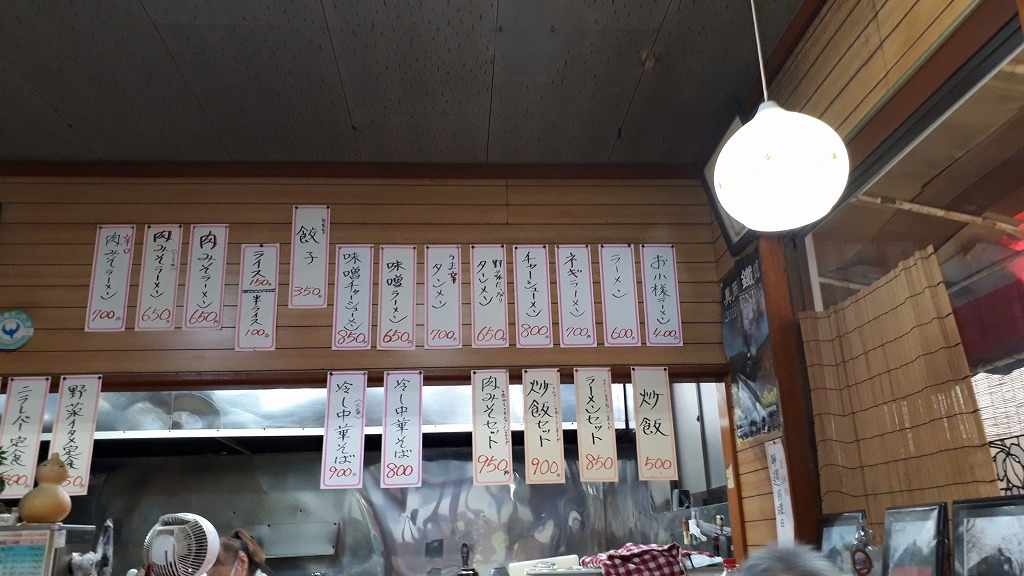 お子様ラーメン 400
ラーメン 600
ネギラーメン 700
チャーシューメン 800
野菜たっぷり
タンメン 650
タンメン 700
味噌ラーメン 650
味噌チャーシュメン 850
餃子 350
ライス 150
半ライス 100
肉みそラーメン 650
肉ラーメン 650
肉みそラーメン 700
炒飯 500
ラーメンセット 850
炒飯セット 900
肉みそセット 950円
冷し中華そば 800
冷し中華そば 900
野菜イタメ定食
ニラレバー定食